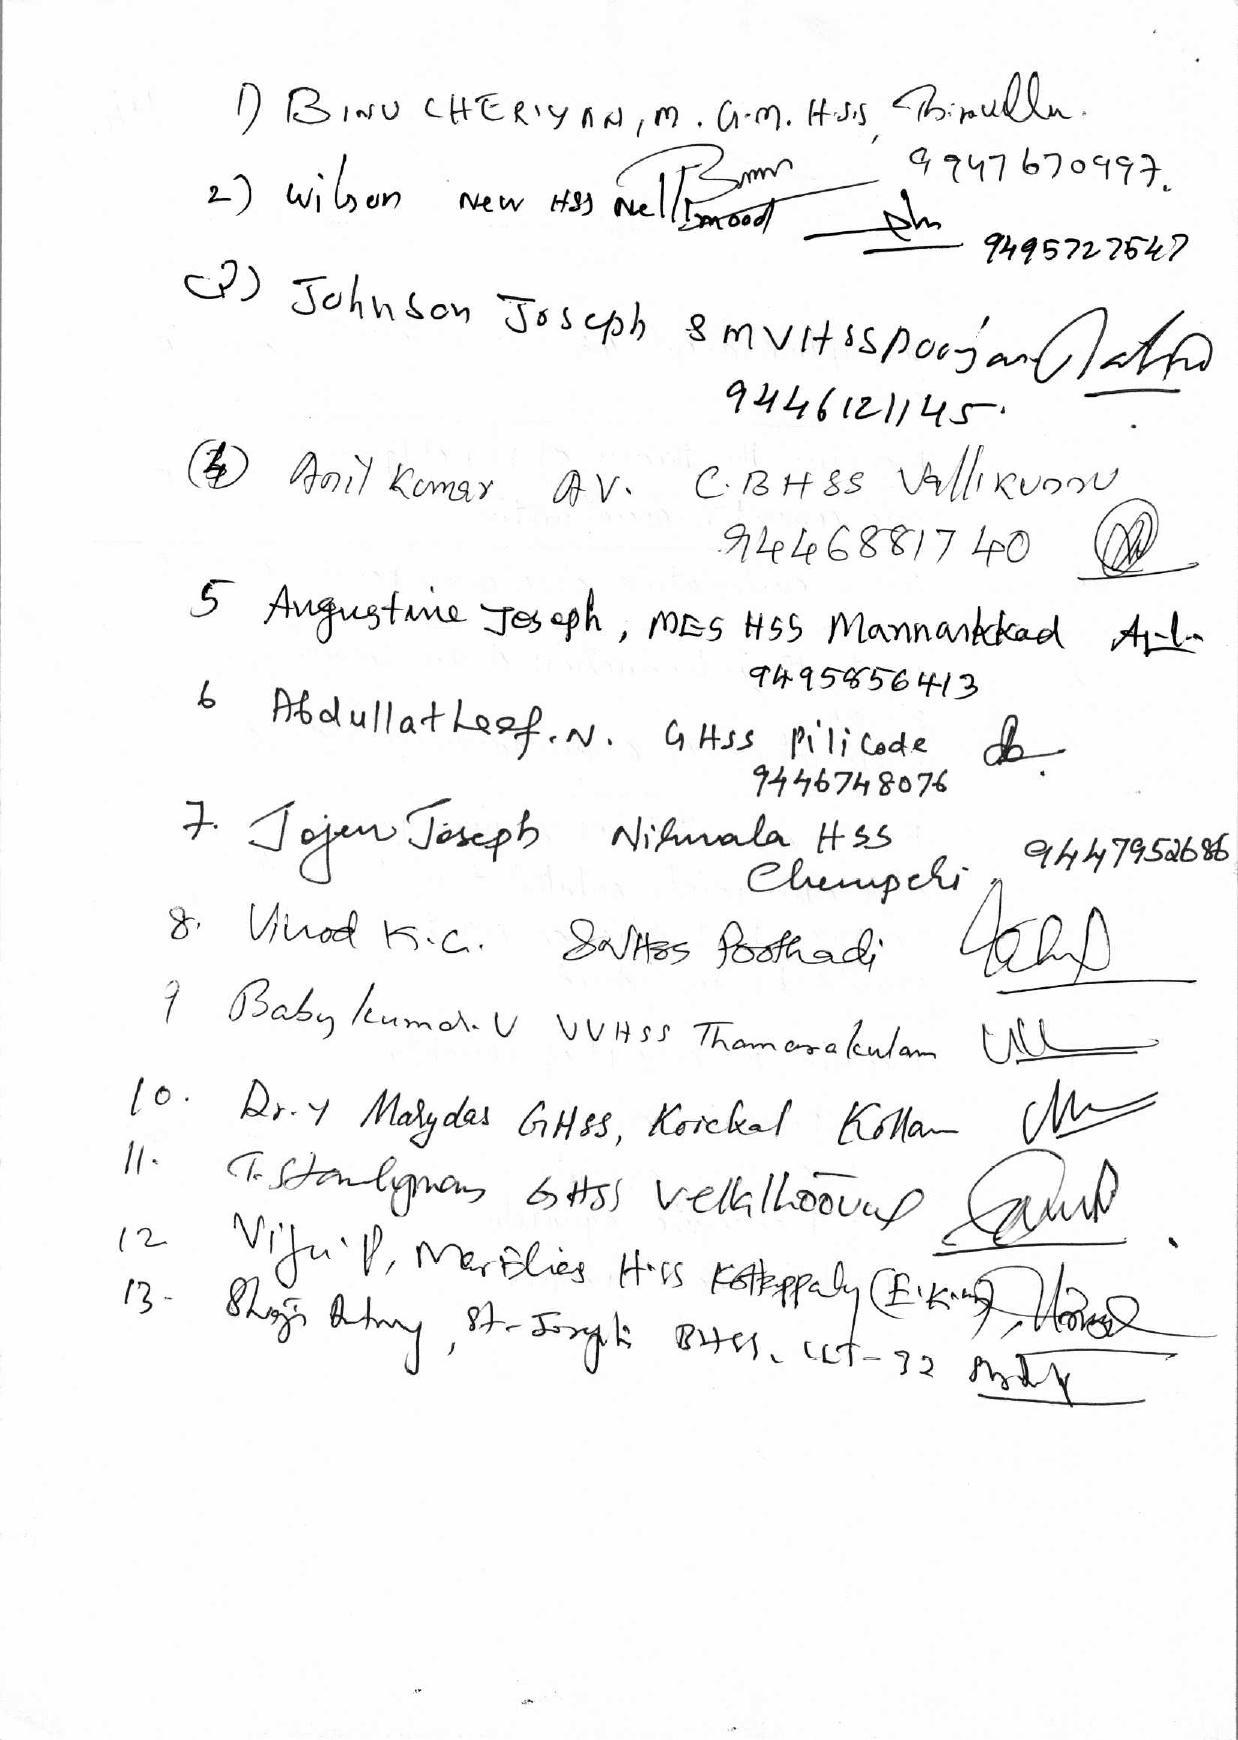 1) BINU CHERIYAN, M. G.M. H.S.S,
9947670997.
2) Wilson New HSS Nellimood
9495727547
3) Johnson Joseph SMVHSS Poonjar
9446121145.
(4) Anil Kumar AV. C.B HSS Vallikunnu
9446881740
5 Augustine Joseph, MES HSS Mannarkkad
9495856413
6 Abdullatheef. N. GHSS Pilicode
9446748076
7. Jojen Joseph Nirmala HSS
Chemperi, 9447952686
8. Vinod K.C. SNHSS Poothadi
9 Baby kumar. V VVHSS Thamarakulam
10. Dr. Y Marydas GHSS, Koickal Kollam
11. T. Stanlyman GHSS
12 Viju P, Mar Elias HSS Kottappady (E.K.m)
13. Shaji Antony, St. Joseph BHSS, CLT-32